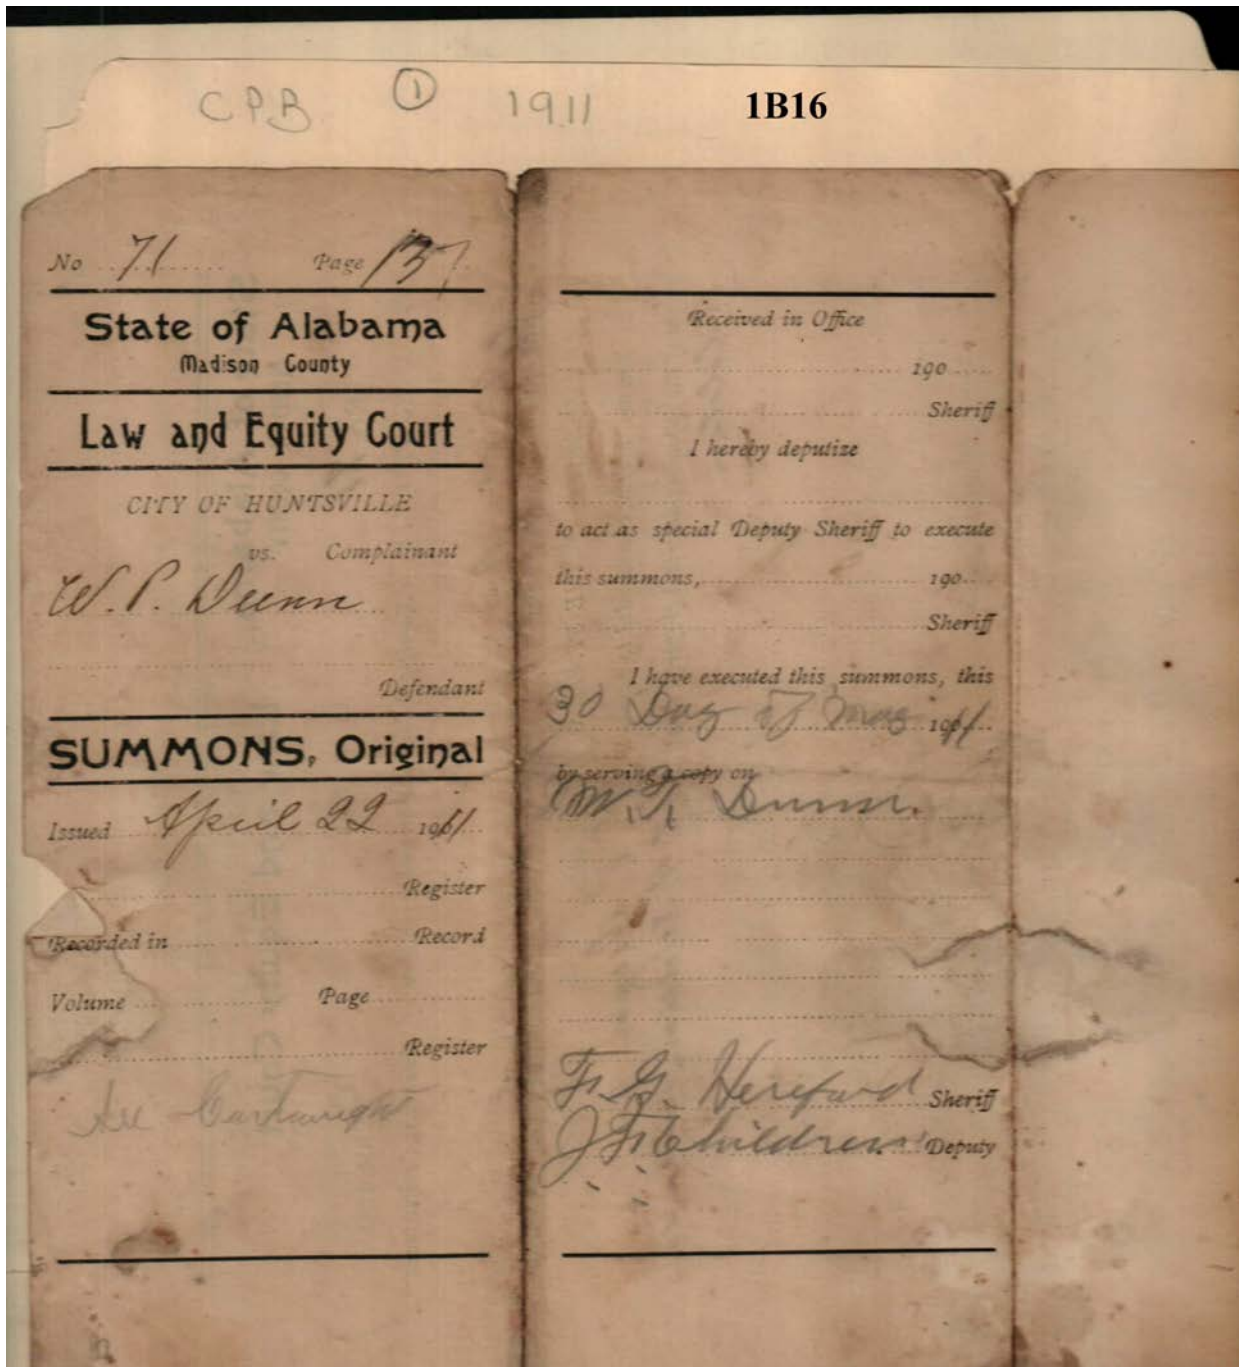 CPB ① 1911 1B16
No 71 Page 137
State of Alabama
Madison County
Law and Equity Court
CITY OF HUNTSVILLE
vs. Complainant
W. P. Dunn
Defendant
SUMMONS, Original
Issued April 22 1911
Register
Recorded in Record
Volume Page
Register
Cartwright
Received in Office
190
Sheriff
I hereby deputize
to act as special Deputy Sheriff to execute
this summons, 190
Sheriff
I have executed this summons, this
30 Day of 1911
by serving a copy on
Dunn.
F. G. Hereford Sheriff
J F Childress Deputy